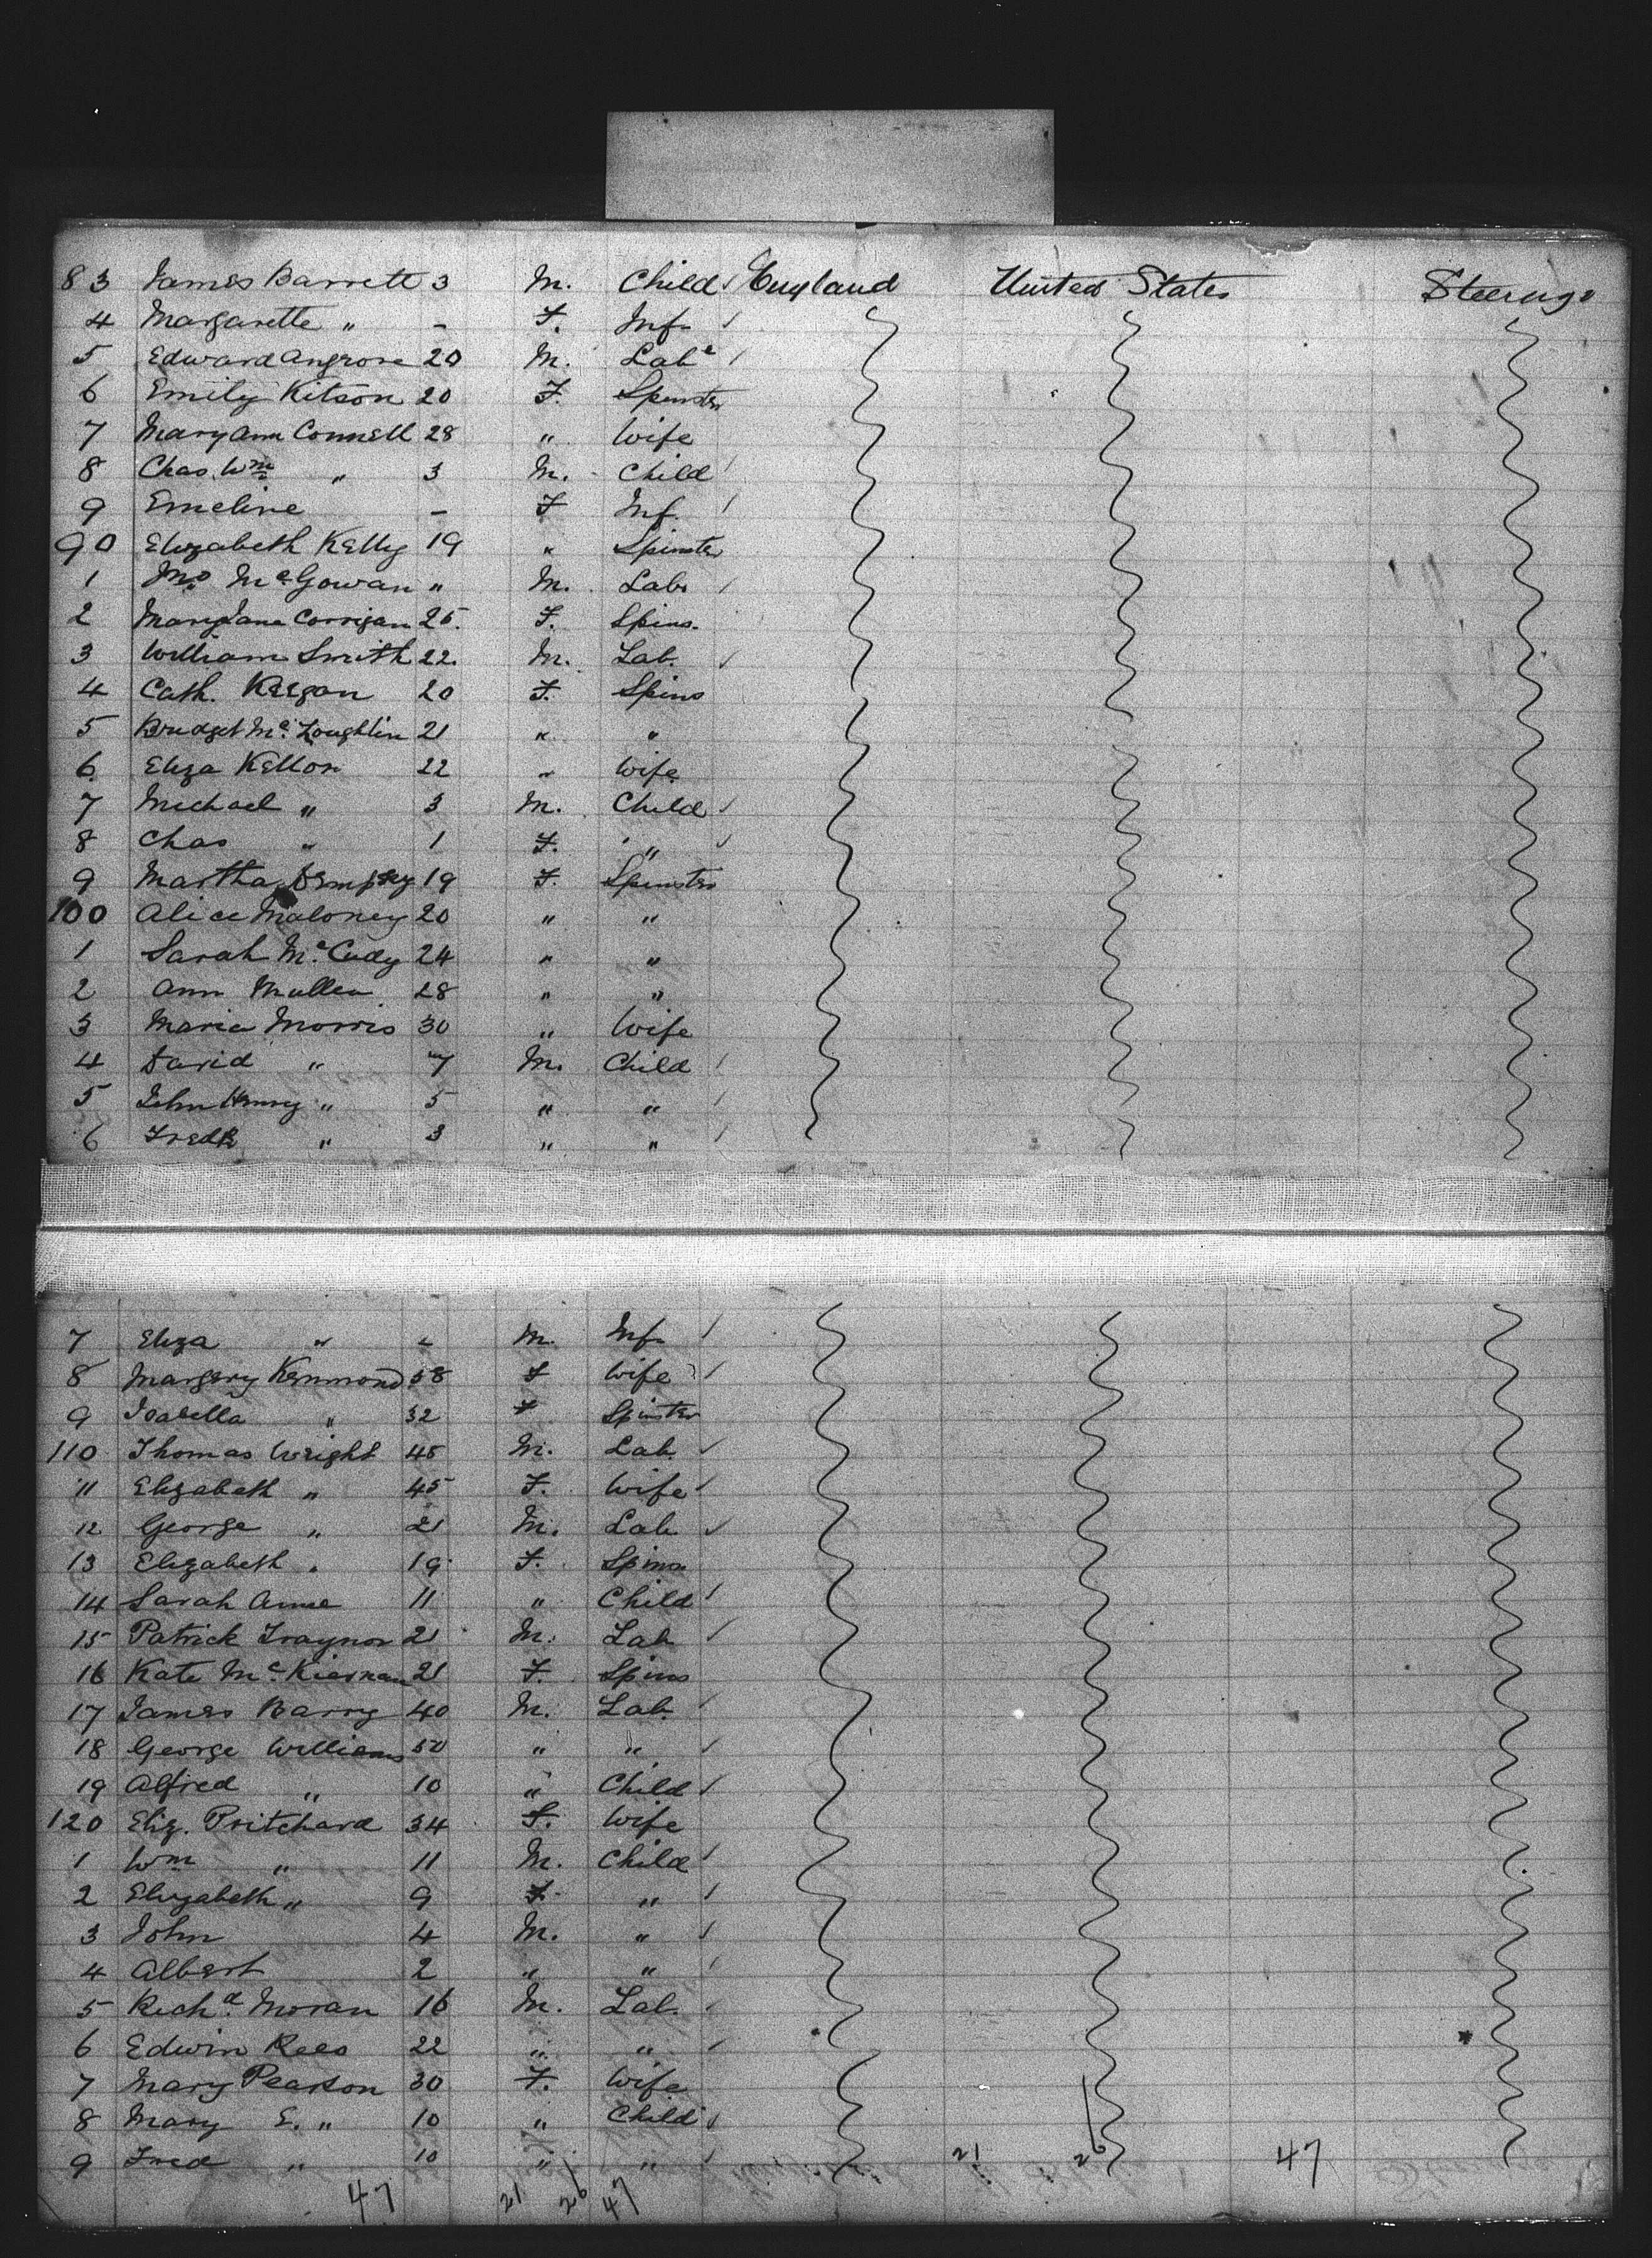 83 James Barrett 3 M. Child England United States Steerage
4 Margarette " - F. Inf
5 Edward Angrove 20 M. Labr
6 Emily Kitson 20 F. Spinster
7 Mary Ann Connell 28 " Wife
8 Chas. Wm " 3 M. Child
9 Emeline - F Inf.
90 Elizabeth Kelly 19 " Spinster
1 Jno McGowan " M. Labr
2 Mary Jane Corrigan 25. F. Spins.
3 William Smith 22. M. Lab.
4 Cath. Keegan 20 F. Spins
5 Bridget Mc Loughlin 21 " "
6 Eliza Kellon 22 " Wife
7 Michael " 3 M. Child
8 Chas " 1 F. "
9 Martha Dempsey 19 F. Spinster
100 Alice Maloney 20 " "
1 Sarah McCudy 24 " "
2 Ann Mullen 28 " "
3 Maria Morris 30 " Wife
4 David " 7 M. Child
5 John Henry " 5 " "
6 Fredk " 3 " "
7 Eliza " - M. Inf
8 Margery Kenmond 58 F Wife
9 Isabella " 32 F Spinster
110 Thomas Wright 45 M. Lab.
11 Elizabeth " 45 F. Wife
12 George " 21 M. Lab
13 Elizabeth " 19 F. Spins
14 Sarah Anne 11 " Child
15 Patrick Traynor 21 M. Lab
16 Kate McKiernan 21 F. Spins
17 James Barry 40 M. Lab.
18 George Williams 50 " "
19 Alfred " 10 " Child
120 Eliz. Pritchard 34 F. Wife
1 Wm " 11 M. Child
2 Elizabeth " 9 F. "
3 John 4 M. "
4 Albert 2 " "
5 Richd. Moran 16 M. Lab.
6 Edwin Rees 22 " "
7 Mary Pearson 30 F. Wife
8 Mary E. " 10 " Child
9 Fred " 10 " " 21 26 47
47 21 26 47